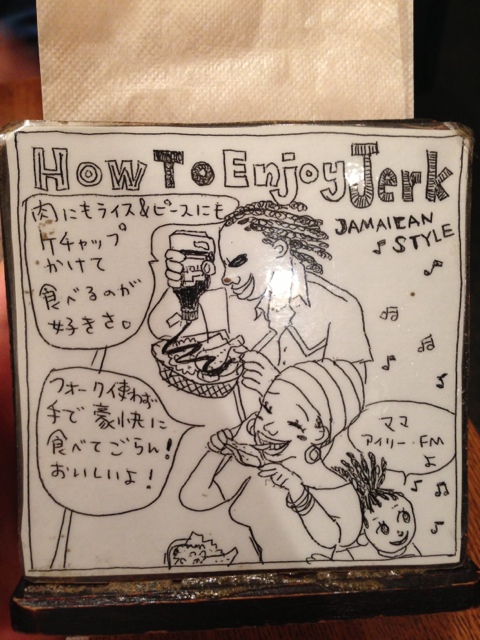 How To Enjoy Jerk
JAMAICAN
STYLE
肉にもライス&ピースにも
ケチャップ
かけて
食べるのが
好きさ。
フォーク使わず
手で豪快に
食べてごらん!
おいしいよ!
ママ
アイリーFM
よ